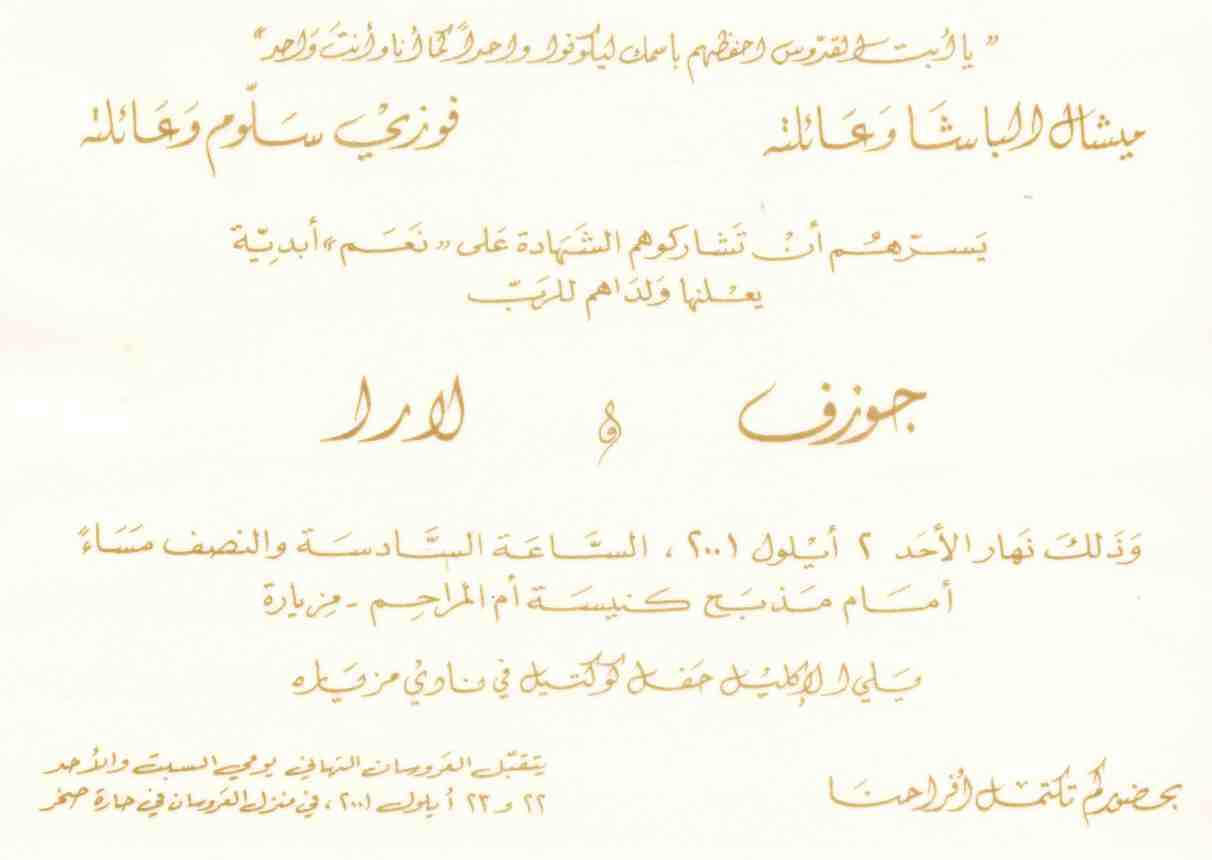 " يا أبت القدّوس احفظهم باسمك ليكونوا واحداً كما أنا وأنتَ وَاحد"
ميشال الباشَا وَعَائلته
فوزيْ سَلّوم وَعَائلته
يَسرّهُم أنْ تَشاركوهم الشَهَادة عَلى «نَعَم» أبديّة
يعْلنها وَلدَاهم للرَبّ
جوزف و لارا
وَذَلكَ نَهار الأحَد ٢ أيْلول ٢٠٠١ ، السَّاعَة السَّادسَة والنصف مسَاءً
أمَام مَذبَح كنيسَة أم المراحِم - مِزيارة
يَلي الإكليْل حَفل كوكتيل في ناديْ مزيَاره
بحضوركم تكتمل أفراحنَا
يتقبّل العَروسان التهاني يومي السبت والأحد
٢٢ و ٢٣ أيلول ٢٠٠١ ، في منزل العَروسان في حارة صخر